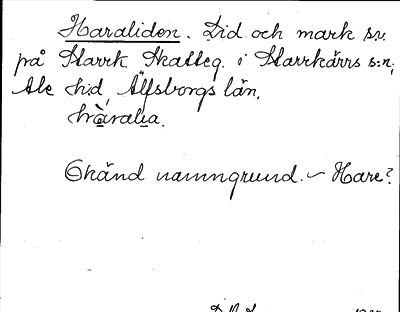 Haraliden. Lid och mark sv.
på Starrk. Skatteg. i Starrkärrs s:n,
Ale hd, Älfsborgs län.
hàralia.
Okänd namngrund. – Hare?